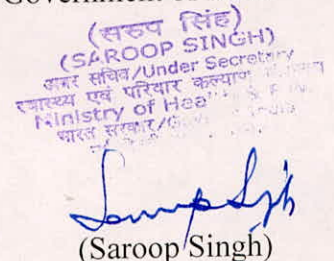 Government
(सरुप सिंह)
(SAROOP SINGH)
अवर सचिव/Under Secretary
स्वास्थ्य एवं परिवार कल्याण
Ministry of Hea
भारत सरकार/
(Saroop Singh)